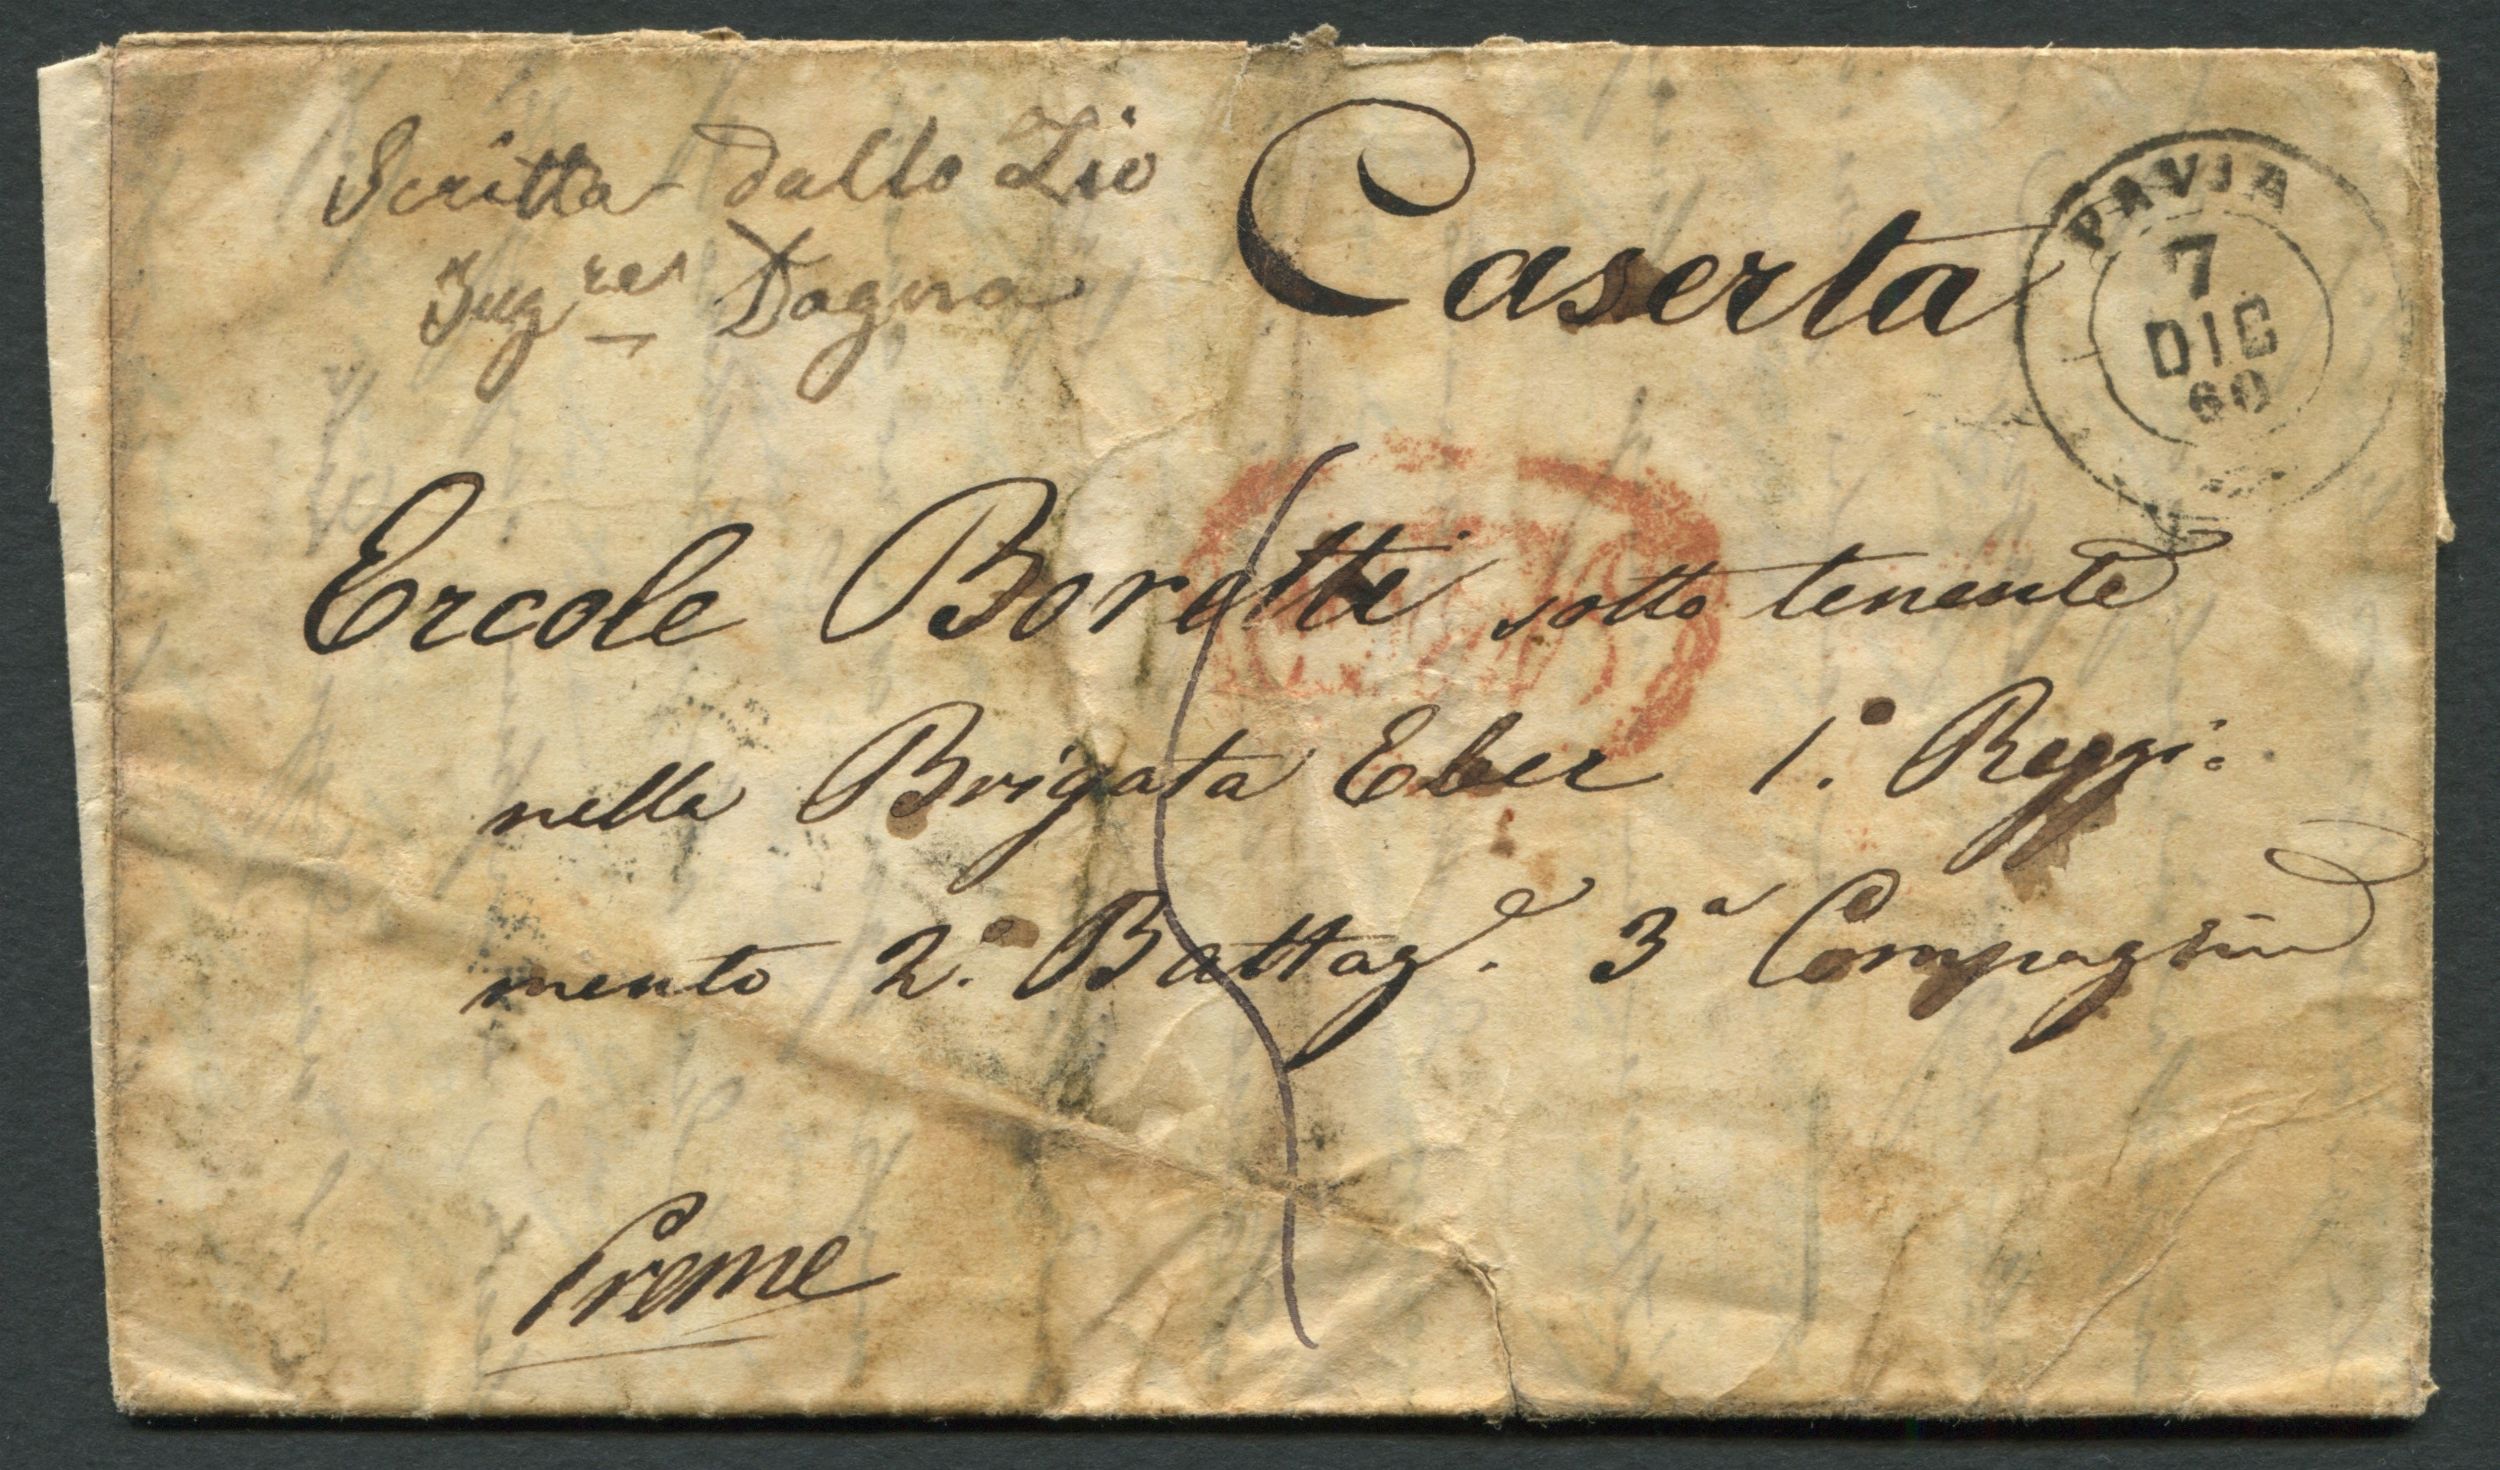 Scritta dallo Zio
Ing.res Dagna
Caserta
PAVIA
7
DIC
60
Ercole Boretti sotto tenente
nella Brigata Eber 1.° Reggi-
mento 2.° Battag.e 3a Compagnia
Preme